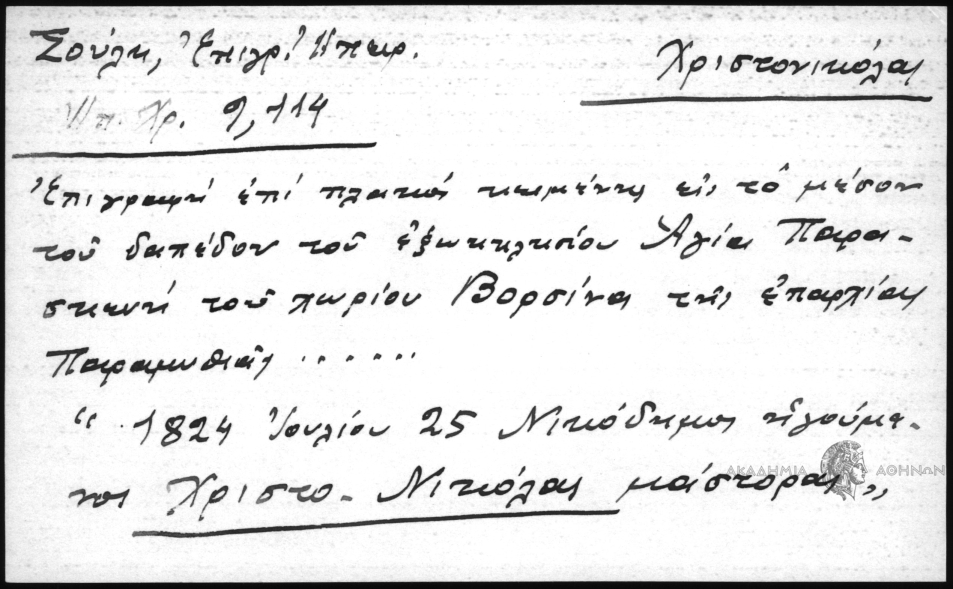 Σούλη, Ἐπιγρ. Ἠπειρ.
Χριστονικόλας
Ἠπ. Χρ. 9, 114
Ἐπιγραφή ἐπί πλακός κειμένης εἰς τό μέσον
τοῦ δαπέδου τοῦ ἐξωκκλησίου Ἁγία Παρα-
σκευή τοῦ χωρίου Βορσίνα τῆς ἐπαρχίας
Παραμυθιᾶς ......
“ 1824 Ἰουλίου 25 Νικόδημος ἡγούμε-
νος Χριστο-Νικόλας μάστορας „
ΑΚΑΔΗΜΙΑ ΑΘΗΝΩΝ